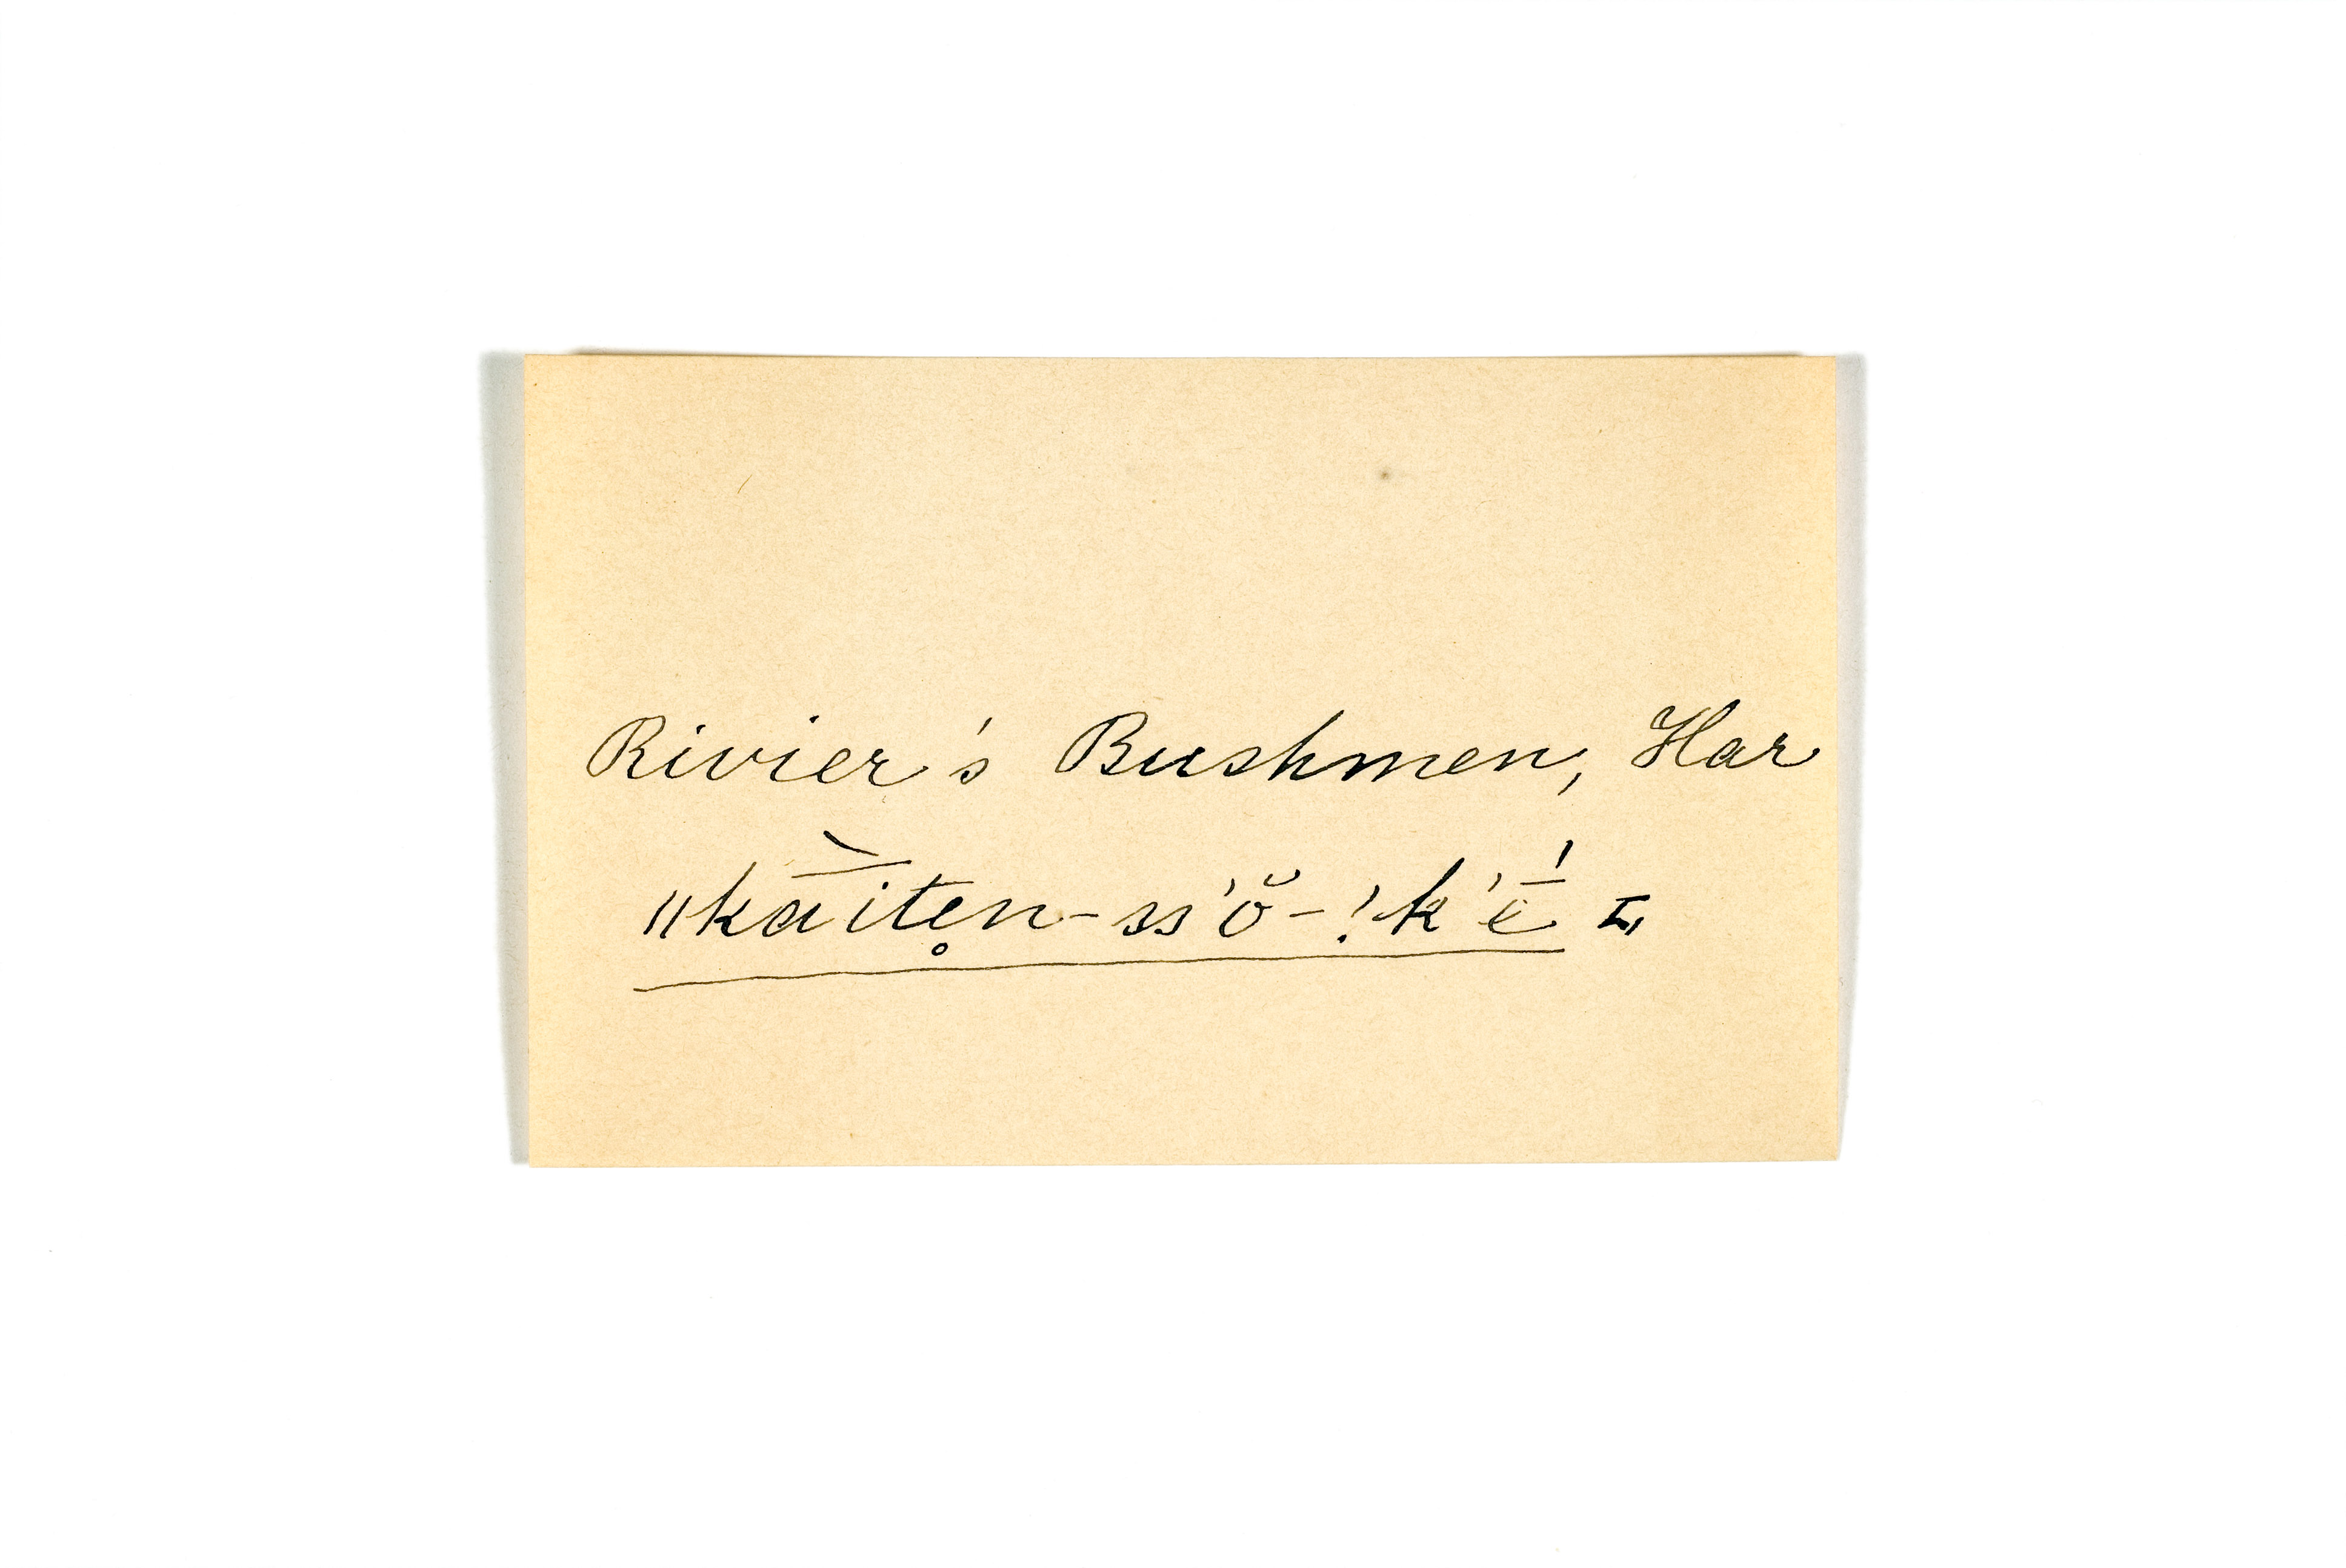 Rivier's Bushmen, Har
ǁkā̀ite̥n-ss'ŏ-!k'ḗ L,